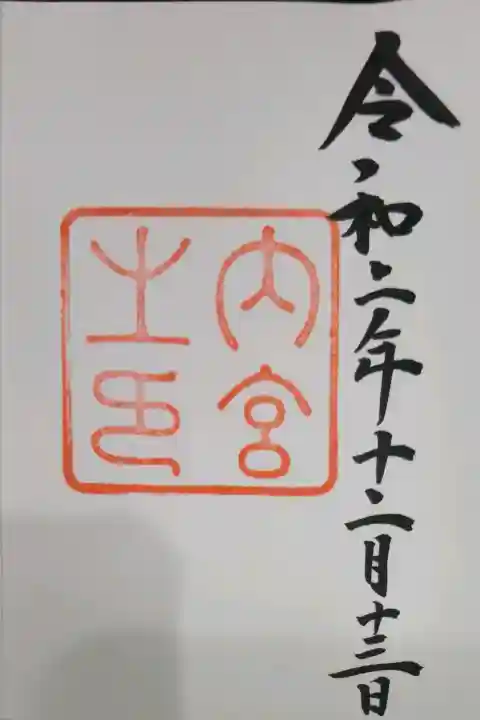 令和二年十二月十三日
内宮
之印